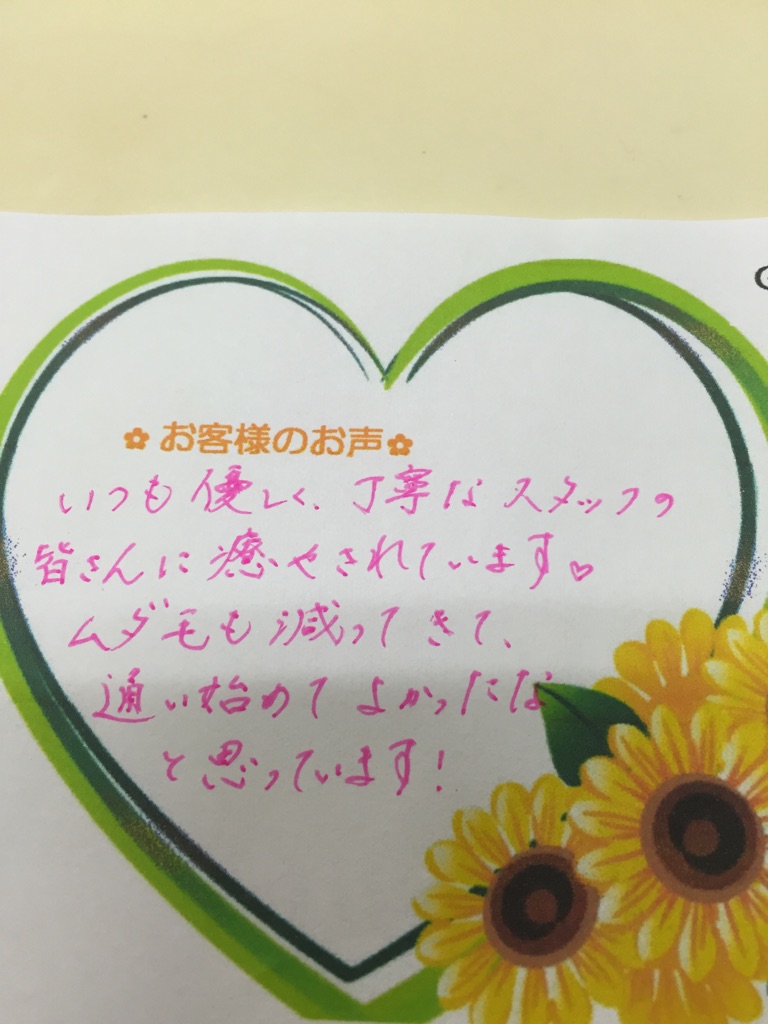 ✿お客様のお声✿
いつも優しく、丁寧なスタッフの
皆さんに癒やされています♡
ムダ毛も減ってきて、
通い始めてよかったな
と思っています！